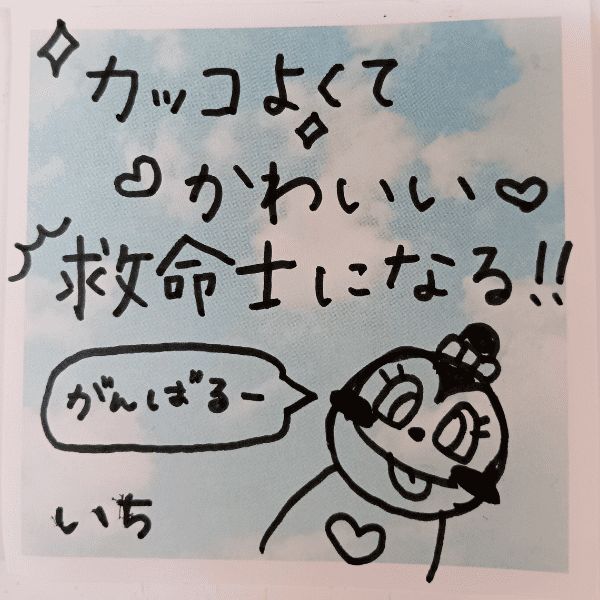 カッコよくて
かわいい
救命士になる!!
がんばるー
いち